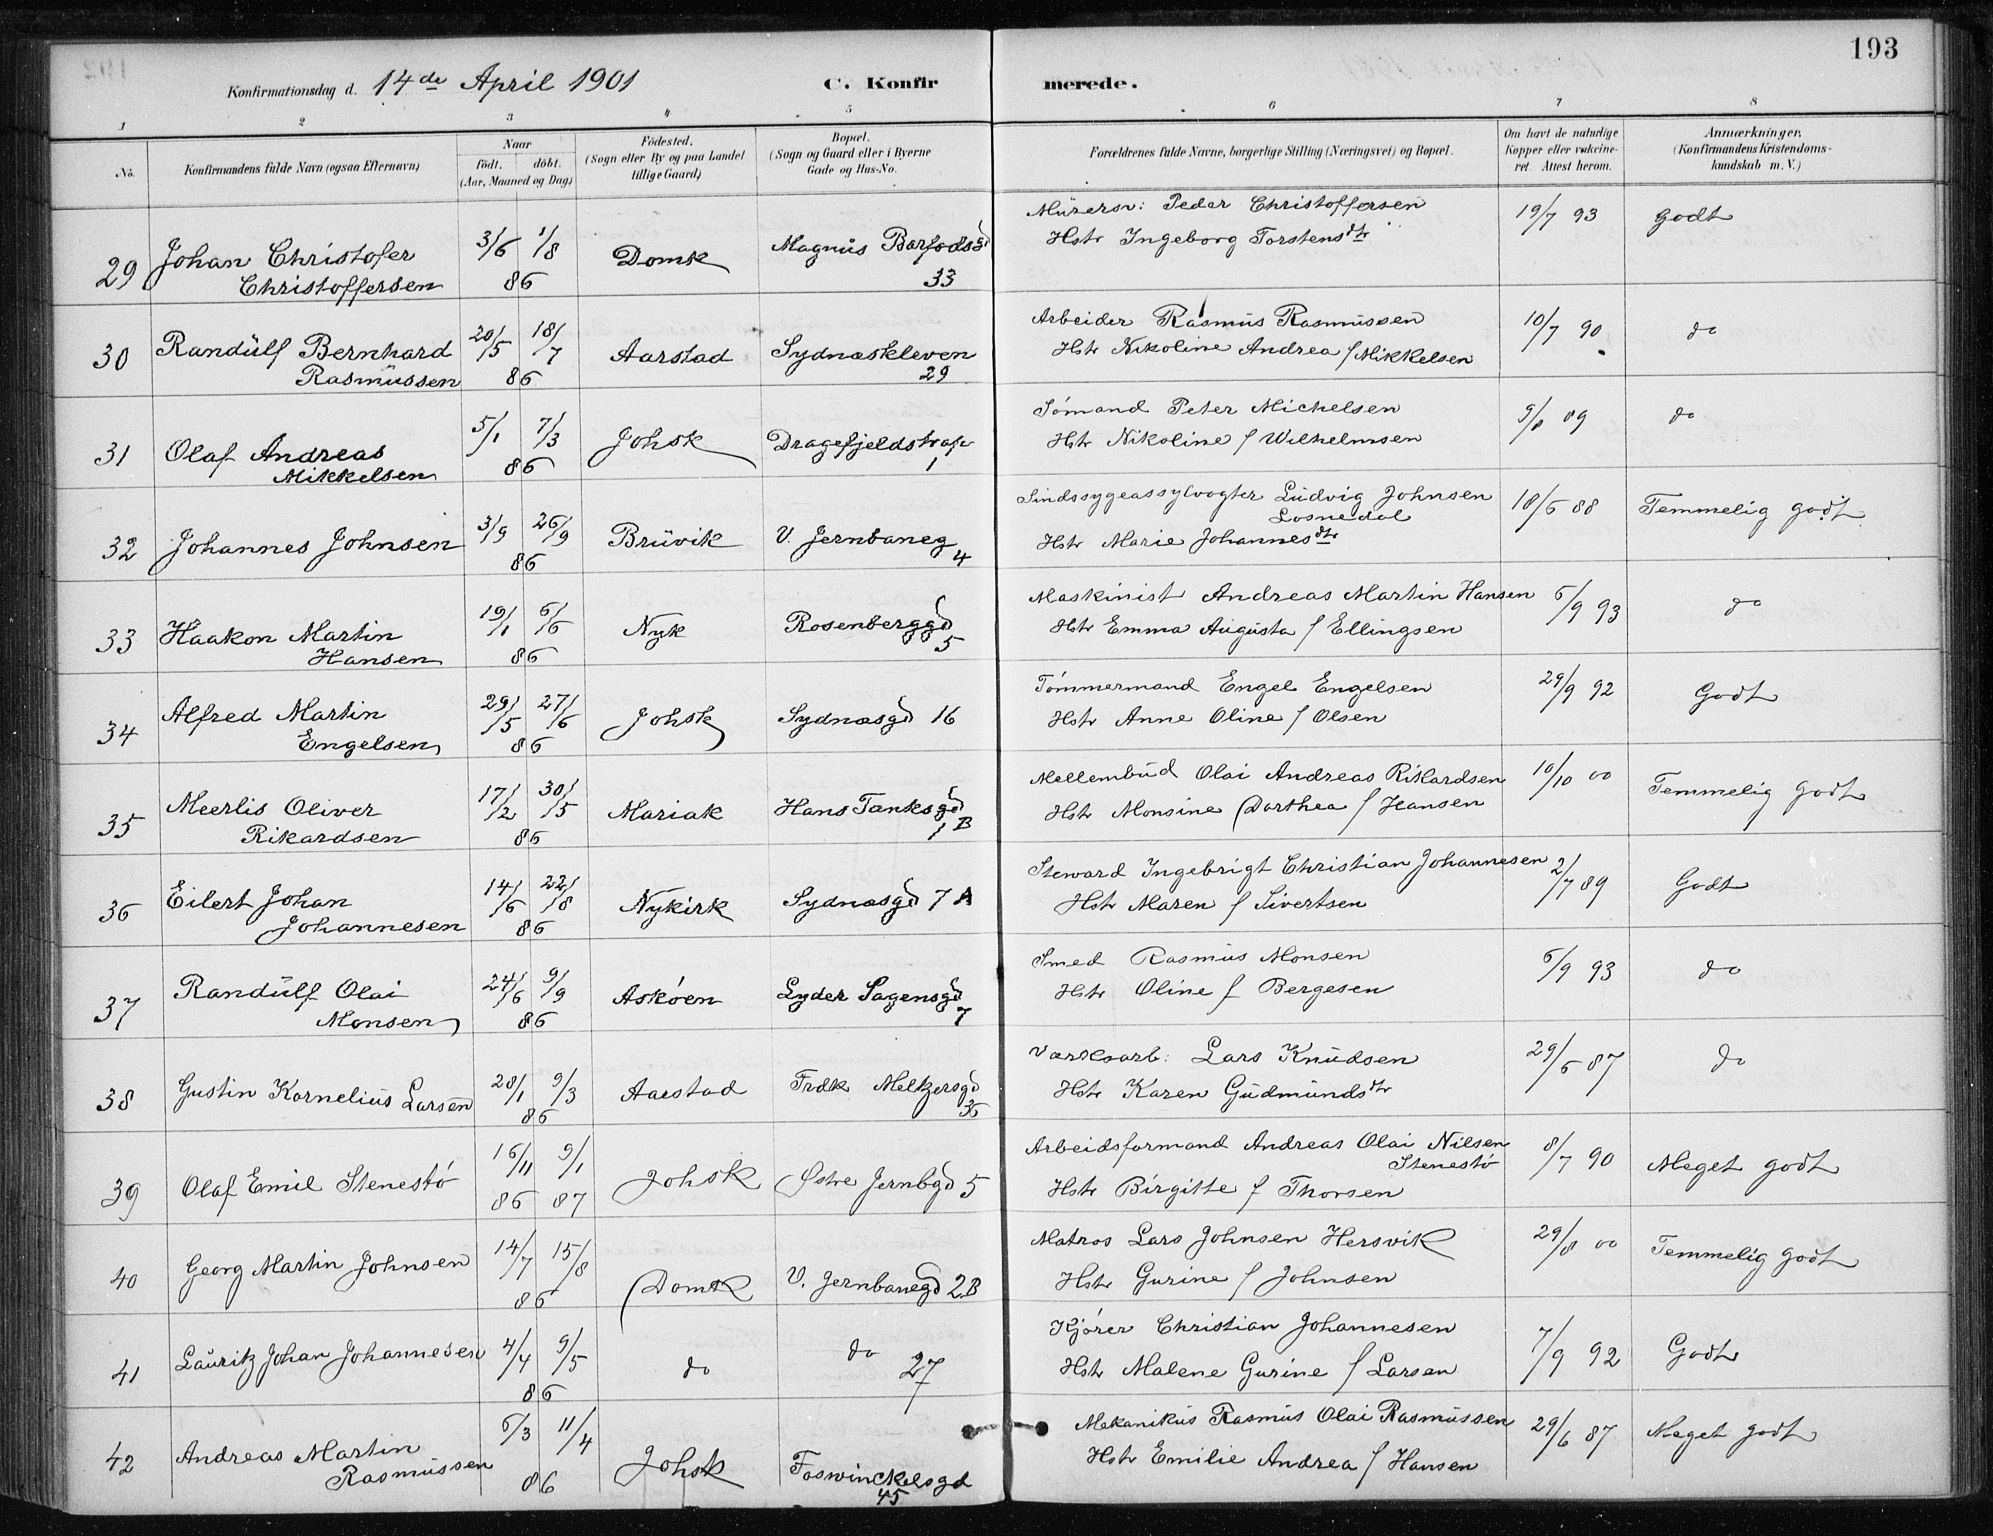 193
Konfirmationsdag d. 14de April 1901 C. Konfirmerede.
1 2 3 4 5 6 7 8
No. Konfirmandens fulde Navn (ogsaa Efternavn) Naar födt. döbt. (Aar, Maaned og Dag) Födested. (Sogn eller By og paa Landet tillige Gaard) Bopæl. (Sogn og Gaard eller i Byerne Gade og Hus-No. Forældrenes fulde Navne, borgerlige Stilling (Næringsvei) og Bopæl. Om havt de naturlige Kopper eller vakcineret. Attest herom. Anmærkninger. (Konfirmandens Kristendomskundskab m. V.)
29 Johan Christofer 3/6 1/8 Domk Magnus Barfodsgd Murersv: Peder Christoffersen 19/7 93 Godt
Christoffersen 86 33 Hstr Ingeborg Torstensdtr
30 Randülf Bernhard 20/5 18/7 Aarstad Sydnæskleven Arbeider Rasmus Rasmussen 10/7 90 do
Rasmüssen 86 29 Hstr Nikoline Andrea f Mikkelsen
31 Olaf Andreas 5/1 7/3 Johsk Dragefjeldstrape Sömand Peter Michelsen 9/8 89 do
Mikkelsen 86 1 Hstr Nikoline f Wilhelmsen
32 Johannes Johnsen 3/9 26/9 Brüvik V. Jernbaneg Sindssygeassylvogter Ludvig Johnsen 18/6 88 Temmelig godt
Losnedal
86 4 Hstr Marie Johannesdtr
33 Haakon Martin 19/1 6/6 Nyk Rosenberggd Maskinist Andreas Martin Hansen 6/9 93 do
Hansen 86 5 Hstr Emma Augusta f Ellingsen
34 Alfred Martin 29/5 27/6 Johsk Sydnæsgd 16 Tömmermand Engel Engelsen 29/9 92 Godt
Engelsen 86 Hstr Anne Oline f Olsen
35 Meerlis Oliver 17/2 30/5 Mariak Hans Tanksgd Mellembud Olai Andreas Rikardsen 10/10 00 Temmelig Godt
Rikardsen 86 1 B Hstr Monsine Dorthea f Hansen
36 Eilert Johan 14/6 22/8 Nykirk Sydnæsgd 7 A Steward Ingebrigt Christian Johannesen 2/7 89 Godt
Johannesen 86 Hstr Maren f Sivertsen
37 Randülf Olai 24/6 9/9 Asköen Lyder Sagensgd Smed Rasmus Monsen 6/9 93 do
Monsen 86 7 Hstr Oline f Bergesen
38 Gustin Kornelius Larsen 28/1 9/3 Aarstad Frdk Meltzersgd Værksarb: Lars Knudsen 29/6 87 do
86 36 Hstr Karen Gudmundsdtr
39 Olaf Emil Stenestö 16/11 9/1 Johsk Østre Jernbgd 5 Arbeidsformand Andreas Olai Nilsen 8/7 90 Meget godt
Stenestö
86 87 Hstr Birgitte f Thorsen
40 Georg Martin Johnsen 14/7 15/8 Domk V. Jernbanegd 2B Matros Lars Johnsen Hersvik 29/8 00 Temmelig godt
86 Hstr Gurine f Johnsen
41 Lauritz Johan Johannesen 4/4 9/5 do do Kjörer Christian Johannesen 7/9 92 Godt
86 27 Hstr Malene Gurine f Larsen
42 Andreas Martin 6/3 11/4 Johsk Foswinckelsgd Mekanikus Rasmus Olai Rasmussen 29/6 87 Meget godt
Rasmussen 86 45 Hstr Emilie Andrea f Hansen